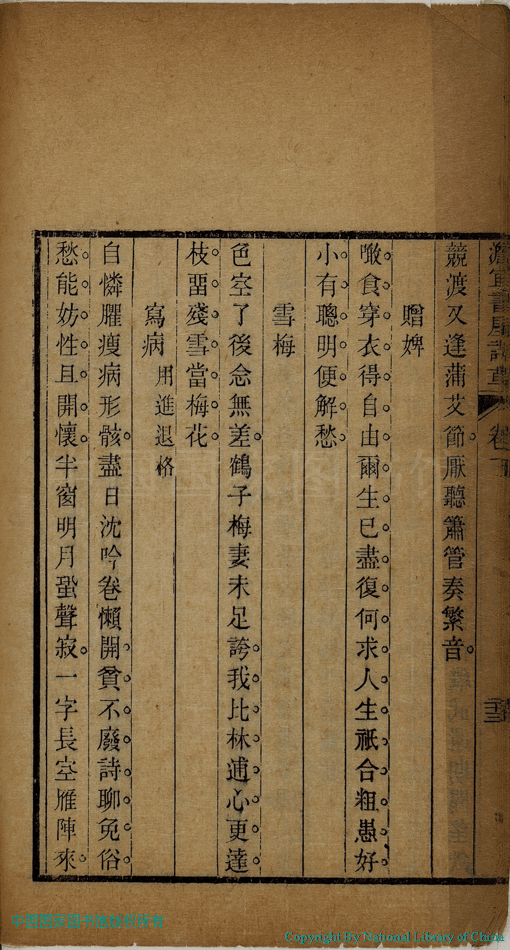 澹宜書屋詩草 卷下
競渡又逢蒲艾節。厭聽簫管奏繁音。
贈婢
噉食穿衣得自由。爾生已盡復何求。人生祇合粗愚好。
小有聰明便解愁。
雪梅
色空了後念無差。鶴子梅妻未足誇。我比林逋心更達。
枝畱殘雪當梅花。
寫病 用進退格
自憐臞瘦病形骸。盡日沈吟卷懶開。貧不廢詩聊免俗。
愁能妨性且開懷。半窗明月蛩聲寂。一字長空雁陣來。
Copyright By National Library of China